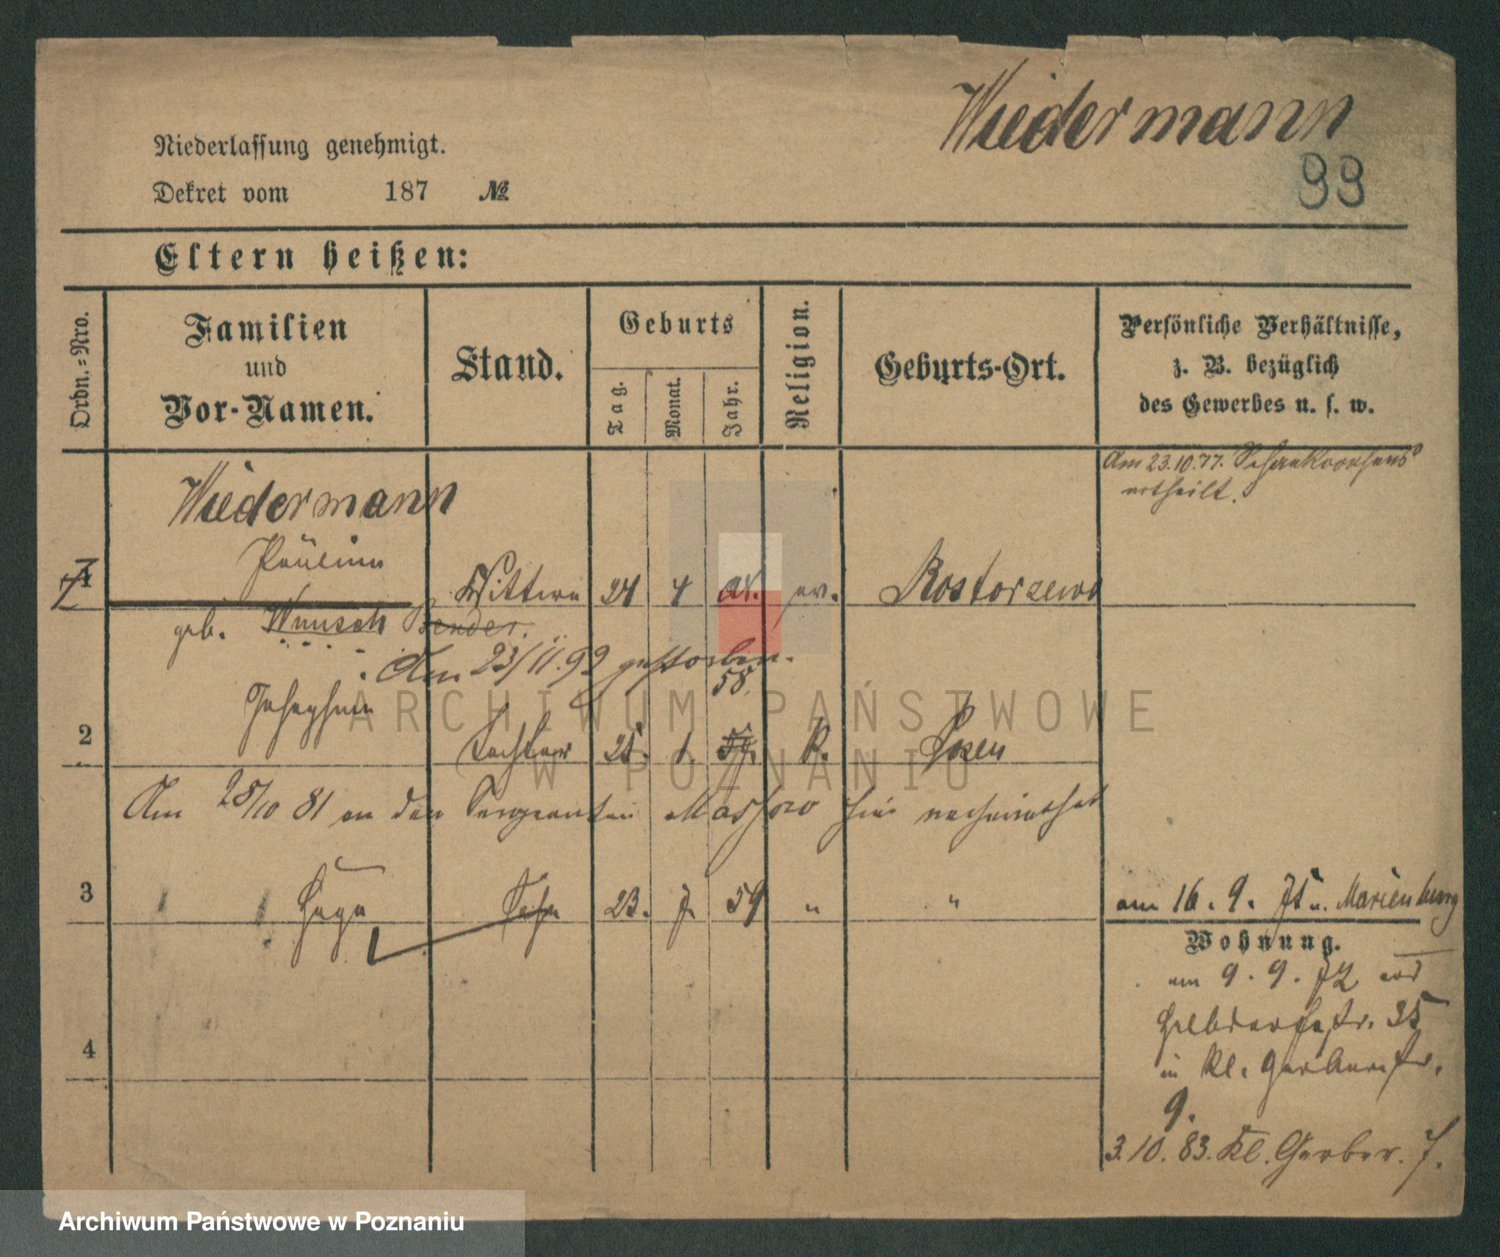 Wiedermann
99
Niederlassung genehmigt.
Dekret vom 187 №
Eltern heißen:
Ordn.=Nro.
Familien
und
Vor-Namen.
Stand.
Geburts
Tag.
Monat.
Jahr.
Religion.
Geburts-Ort.
Persönliche Verhältnisse,
z. B. bezüglich
des Gewerbes u. s. w.
Am 23.10.77. Schankconsens
ertheilt.
Wiedermann
1 Pauline Wittwe 24 4 ev. Rostorzewo
geb. Wunsch Bender.
Am 23/11.99 gestorben.
58.
2 Josephine Tochter 1. K. Posen
Am 25/10 81 an den Sergeanten hier verheirathet
3 Hugo Sohn 23. 7. 59 " "
am 16. 9. 75 n. Marienburg
Wohnung.
am 9. 9. 72
Halbdorfstr. 35
in Kl. Gerberstr.
9.
3.10.83. Kl. Gerber. 7.
4
ARCHIWUM PAŃSTWOWE
W POZNANIU
Archiwum Państwowe w Poznaniu